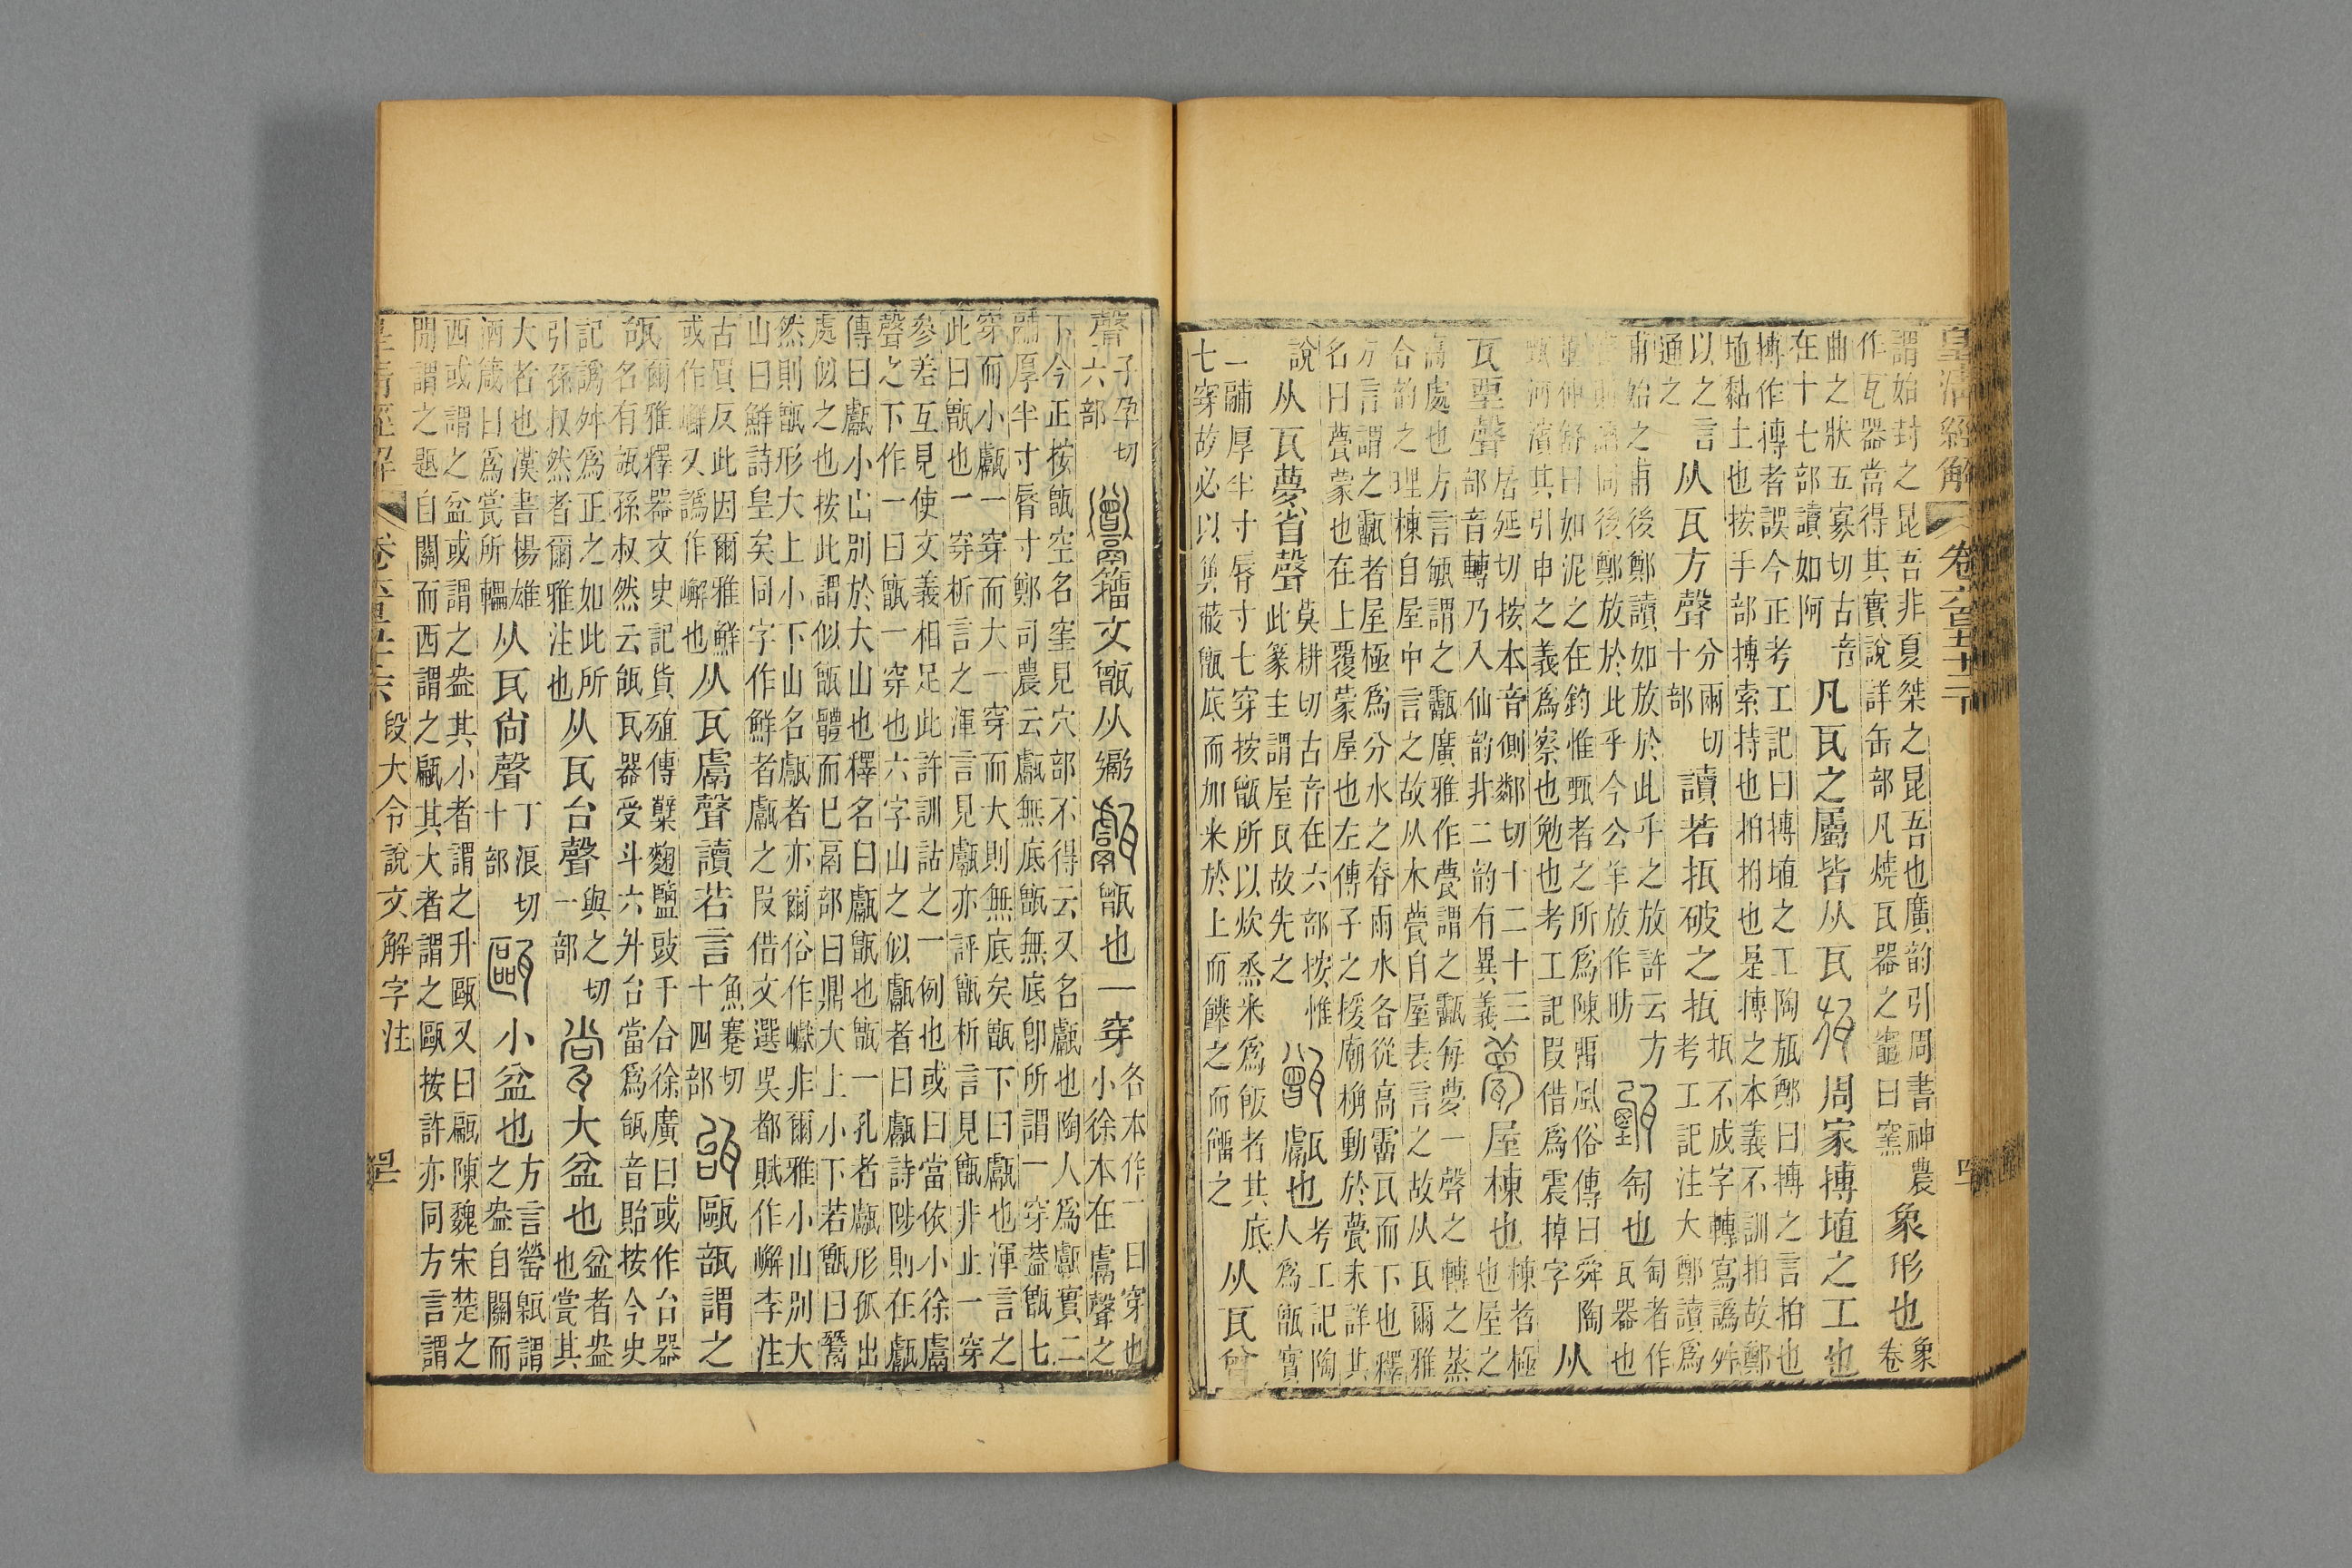 皇清經解 卷六百五十二下
謂始封之昆吾非夏桀之昆吾也廣韵引周書神農
作瓦器當得其實說詳缶部凡燒瓦器之竈曰窯
象形也
象
卷
曲之狀五寡切古音
在十七部讀如阿
凡瓦之屬皆从瓦瓬周家搏埴之工也
搏作摶者誤今正考工記曰搏埴之工陶瓬鄭曰搏之言拍也
埴黏土也按手部搏索持也拍拊也是搏之本義不訓拍故鄭
以之言
通之
从瓦方聲
分兩切
十部
讀若抵破之抵
抵不成字轉寫譌舛
考工記注大鄭讀為
甫始之甫後鄭讀如放於此乎之放許云方
聲則讀同後鄭放於此乎今公羊放作昉
甄匋也
匋者作
瓦器也
董仲舒曰如泥之在鈞惟甄者之所為陳畱風俗傳曰舜陶
甄河濱其引申之義為察也勉也考工記叚借為震掉字
从
瓦垔聲
居延切按本音側鄰切十二十三
部音轉乃入仙韵非二韵有異義
甍屋棟也
棟者極
也屋之
高處也方言謂之廣雅作甍謂之每夢一聲之轉之蒸
合韵之理棟自屋中言之故从木甍自屋表言之故从瓦爾雅
方言謂之者屋極為分水之脊雨水各從高霤瓦而下也釋
名曰甍蒙也在上覆蒙屋也左傳子之援廟桷動於甍未詳其
說
从瓦夢省聲
莫耕切古音在六部按惟
此篆主謂屋瓦故先之
甑甗也
考工記陶
人為甑實
二鬴厚半寸脣寸七穿按甑所以炊烝米為飯者其底
七穿故必以箄蔽甑底而加米於上而餴之而餾之
从瓦曾
聲
子孕切
六部
籒文甑从䰜甗甑也一穿
各本作一曰穿也
小徐本在鬳聲之
下今正按甑空名窐見穴部不得云又名甗也陶人為甗實二
鬴厚半寸脣寸鄭司農云甗無底甑無底卽所謂一穿葢甑七
穿而小甗一穿而大一穿而大則無底矣甑下曰甗也渾言之
此曰甑也一穿析言之渾言見甗亦評甑析言見甑非止一穿
參差互見使文義相足此許訓詁之一例也或曰當依小徐鬳
聲之下作一曰甑一穿也六字山之似甗者曰甗詩陟則在甗
傳曰甗小山別於大山也釋名曰甗甑也甑一孔者甗形孤出
處似之也按此謂似甑體而已鬲部曰鼎大上小下若甑曰鬵
然則甑形大上小下山名甗者亦爾俗作巘非爾雅小山別大
山曰鮮詩皇矣同字作鮮者甗之叚借文選吳都賦作嶰李注
古買反此因爾雅鮮
或作嶰又譌作嶰也
从瓦鬳聲讀若言
魚蹇切
十四部
瓵甌瓿謂之
瓵
爾雅釋器文史記貨殖傳糵麴鹽豉千合徐廣曰或作台器
名有瓵孫叔然云瓵瓦器受斗六升台當為瓵音貽按今史
記譌舛為正之如此所
引孫叔然者爾雅注也
从瓦台聲
與之切
一部
大盆也
盆者盎
也瓽其
大者也漢書楊雄
酒箴曰為瓽所轠
从瓦尙聲
丁浪切
十部
甌小盆也
方言罃甈謂
之盎自關而
西或謂之盆或謂之盎其小者謂之升甌又曰㼐陳魏宋楚之
閒謂之㼵自關而西謂之㼐其大者謂之甌按許亦同方言謂
皇清經解 卷六百五十二下 段大令說文解字注